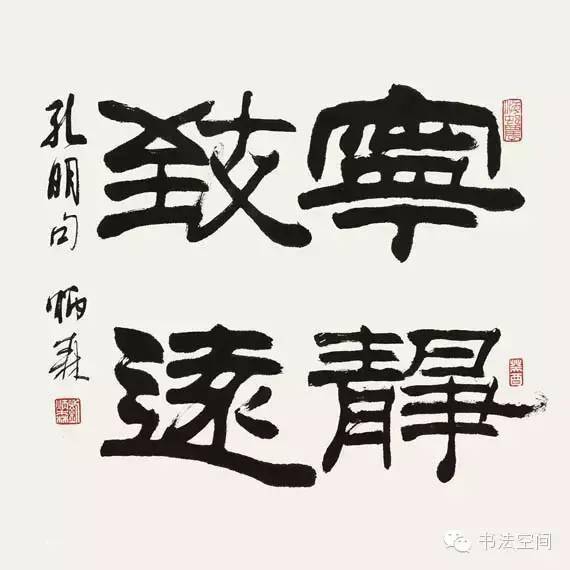 寧靜
致遠
孔明句 炳森
癸酉
书法空间